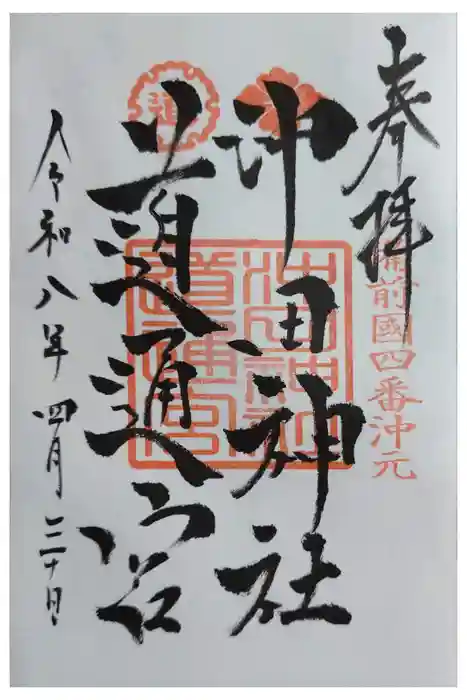 奉拝
備前國四番沖元
沖田神社
道通宮
沖田神社
道通宮
令和八年四月三十日